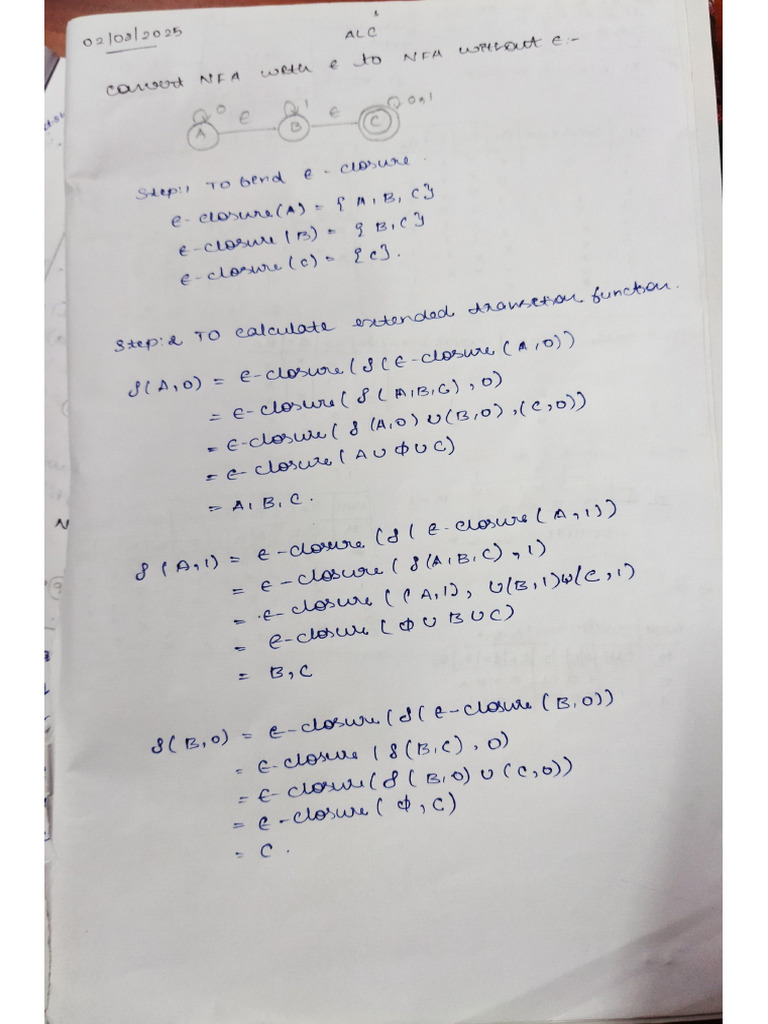 02/03/2025
ALC
Convert NFA with ε to NFA without ε:-
A 0 ε B 1 ε C 0,1
Step:1 To find ε-closure.
ε-closure(A) = {A,B,C}
ε-closure(B) = {B,C}
ε-closure(C) = {C}.
Step:2 To calculate extended transition function.
δ(A,0) = ε-closure(δ(ε-closure(A,0))
= ε-closure(δ(A,B,C),0)
= ε-closure(δ(A,0)∪(B,0),(C,0))
= ε-closure(A∪Φ∪C)
= A,B,C.
δ(A,1) = ε-closure(δ(ε-closure(A,1))
= ε-closure(δ(A,B,C),1)
= ε-closure((A,1), ∪(B,1)∪(C,1)
= ε-closure(Φ∪B∪C)
= B,C
δ(B,0) = ε-closure(δ(ε-closure(B,0))
= ε-closure(δ(B,C),0)
= ε-closure(δ(B,0)∪(C,0))
= ε-closure(Φ,C)
= C.